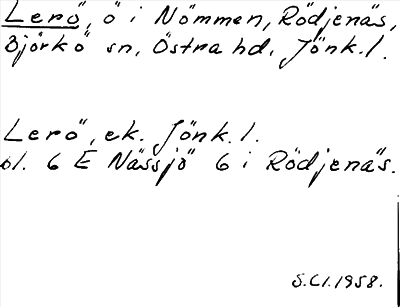 Lerö, ö i Nömmen, Rödjenäs,
Björkö sn, Östra hd, Jönk.l.
Lerö, ek. Jönk.l.
bl. 6 E Nässjö 6 i Rödjenäs.
S.Cl.1958.